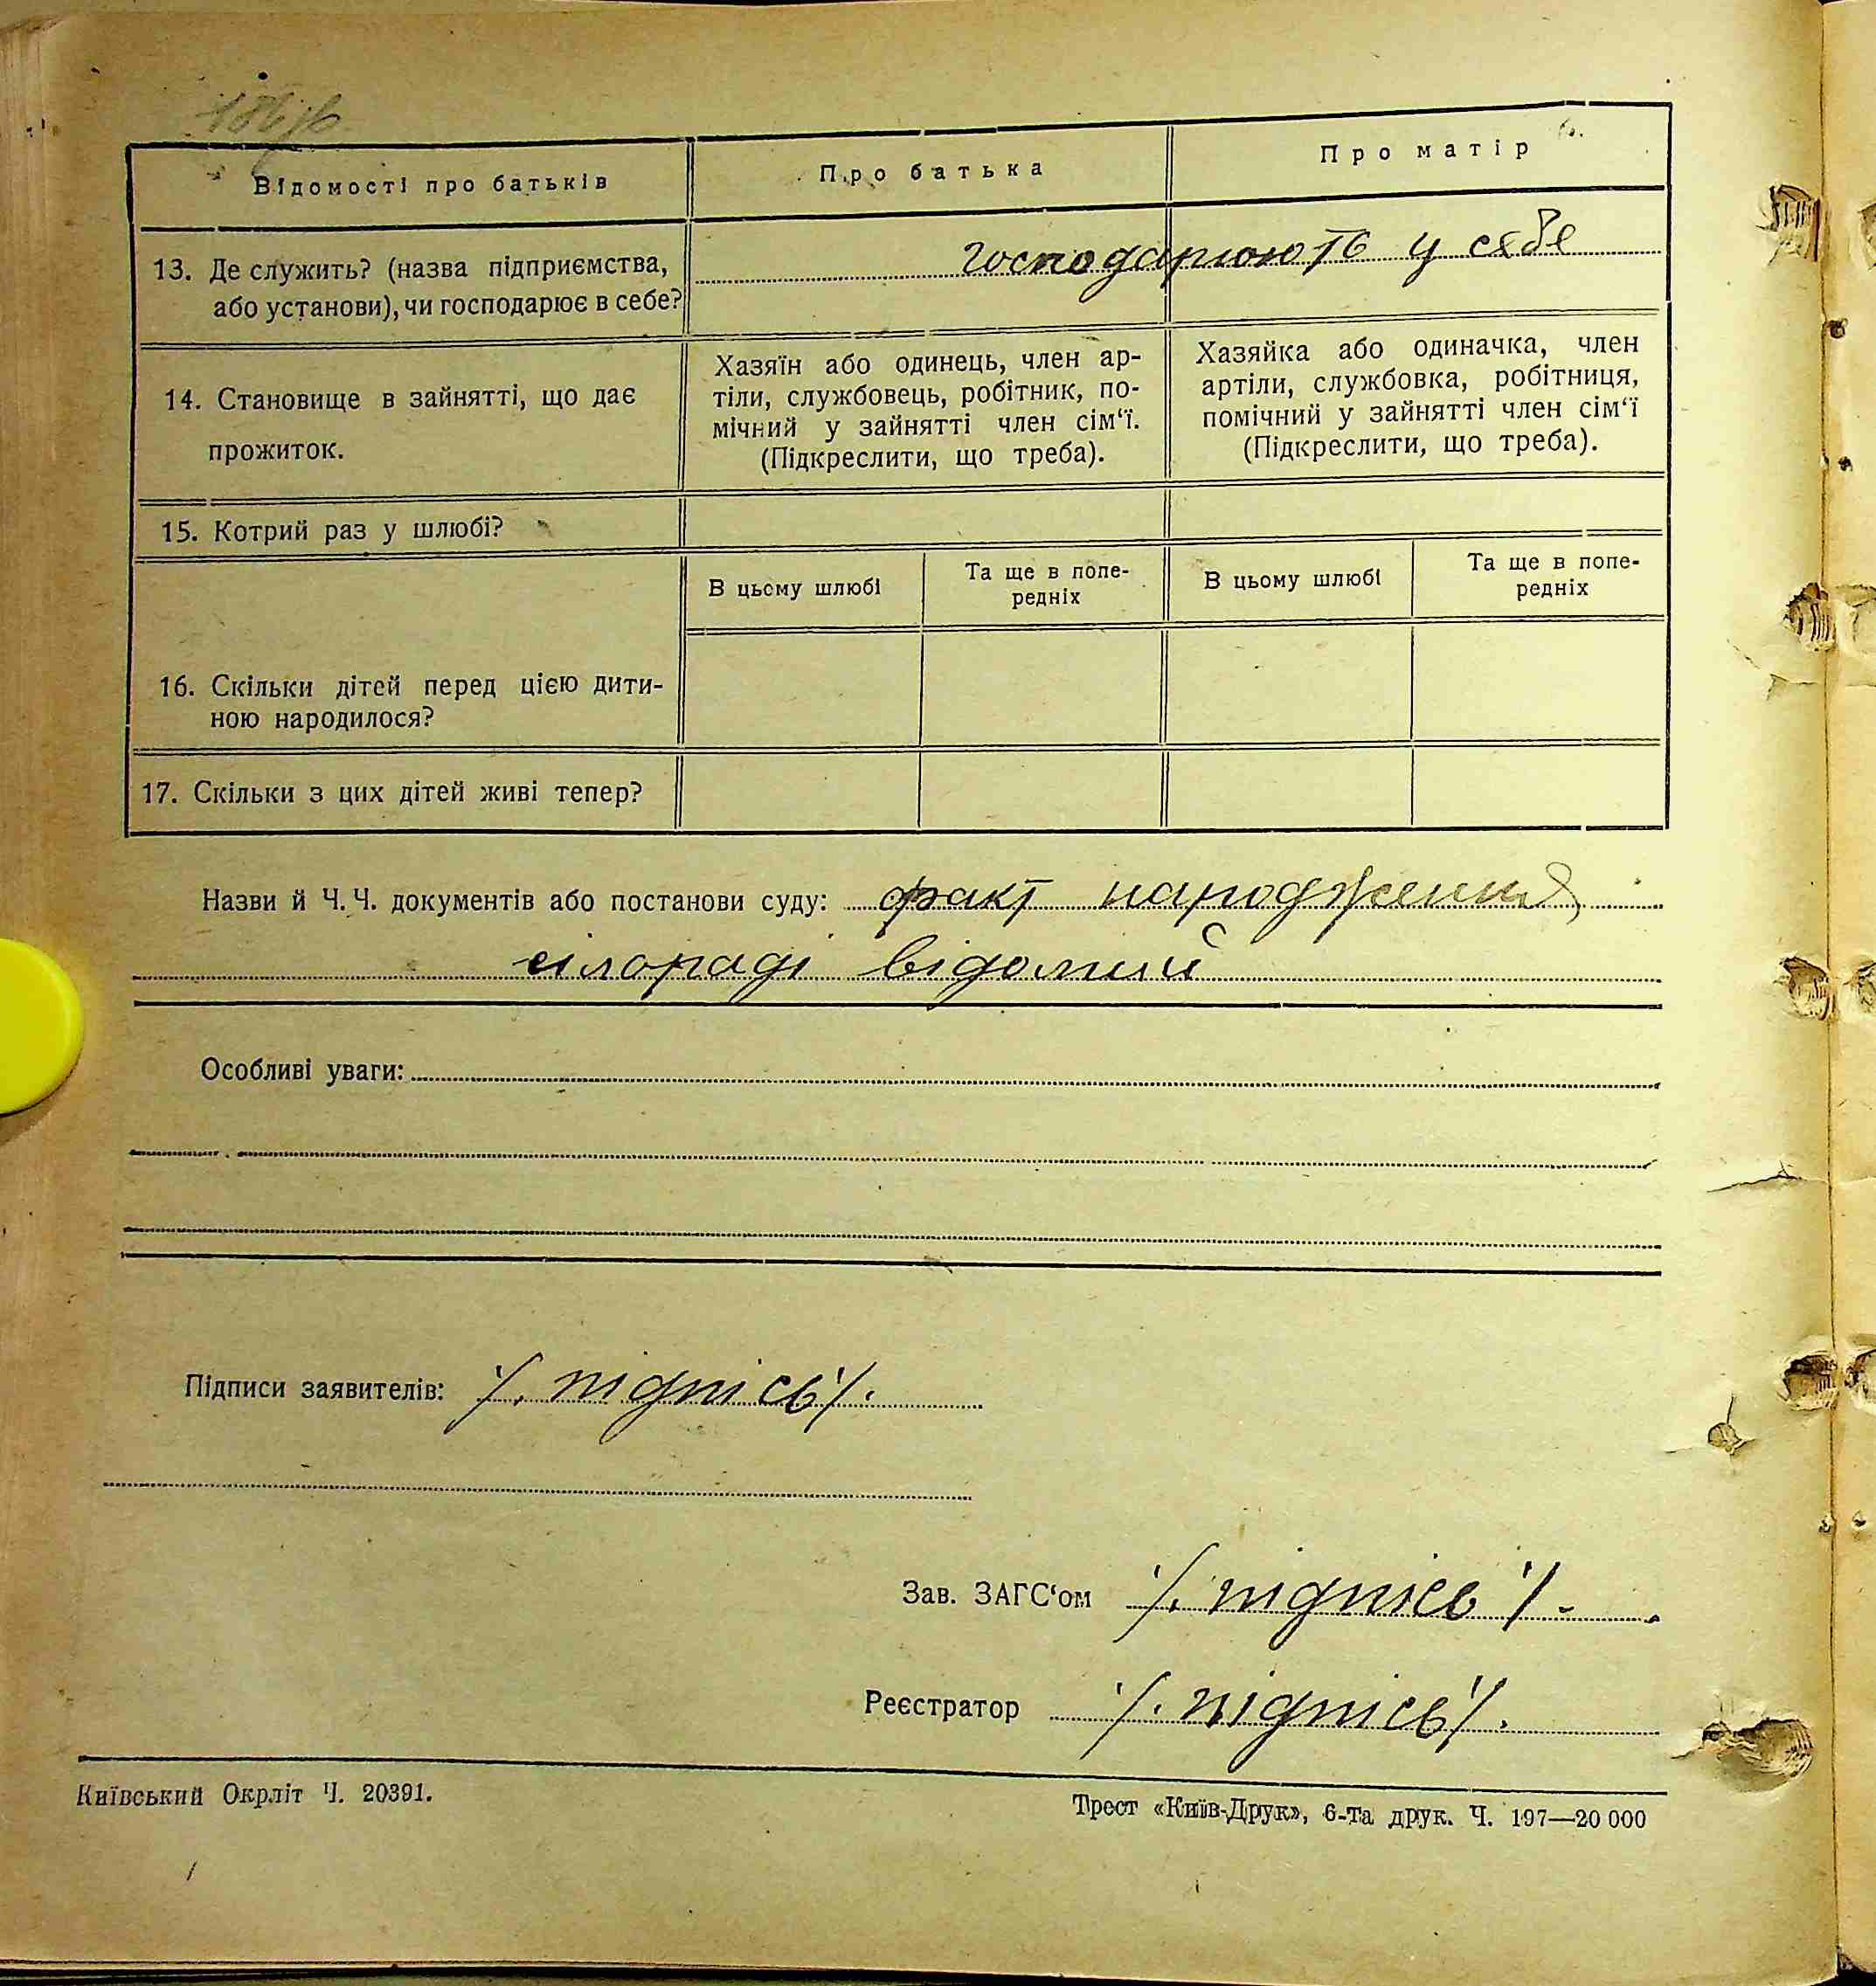 Відомості про батьків
Про батька
Про матір
13. Де служить? (назва підприємства,
або установи), чи господарює в себе?
господарюють у себе
14. Становище в зайнятті, що дає
прожиток.
Хазяїн або одинець, член ар-
тіли, службовець, робітник, по-
мічний у зайнятті член сім'ї.
(Підкреслити, що треба).
Хазяйка або одиначка, член
артіли, службовка, робітниця,
помічний у зайнятті член сім'ї
(Підкреслити, що треба).
15. Котрий раз у шлюбі?
В цьому шлюбі
Та ще в попе-
редніх
В цьому шлюбі
Та ще в попе-
редніх
16. Скільки дітей перед цією дити-
ною народилося?
17. Скільки з цих дітей живі тепер?
Назви й Ч. Ч. документів або постанови суду: факт народження
сілораді відомий
Особливі уваги:
Підписи заявителів: /. підпісь/.
Зав. ЗАГС'ом /. підпісь /.
Реєстратор /. підпісь/.
Київський Окрліт Ч. 20391.
Трест «Київ-Друк», 6-та друк. Ч. 197—20 000